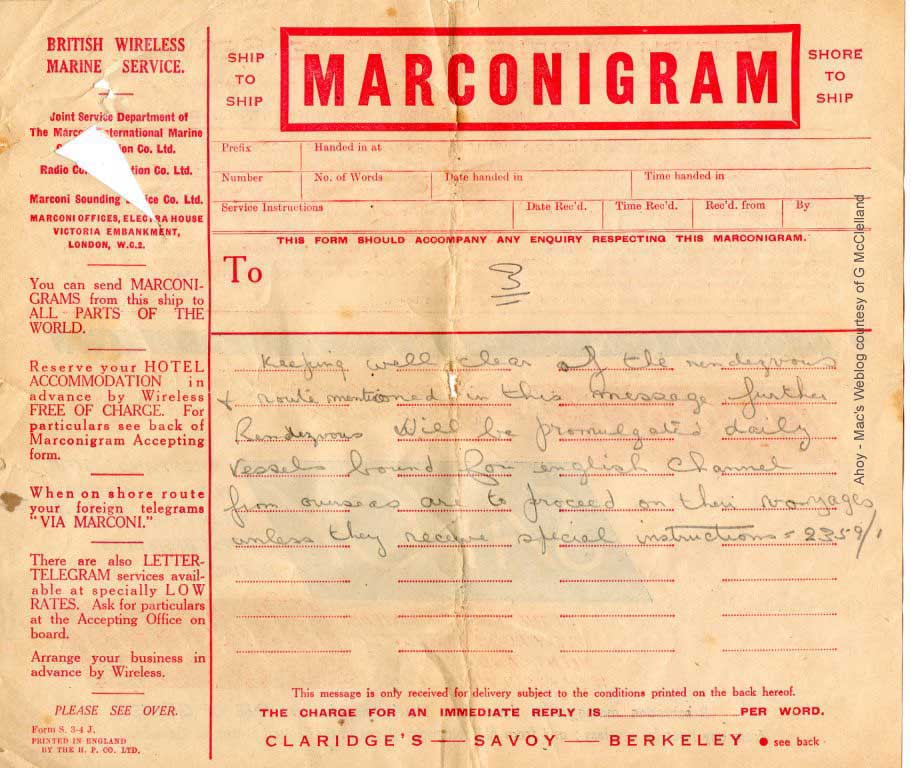 BRITISH WIRELESS
MARINE SERVICE.
Joint Service Department of
The Marco International Marine
tion Co. Ltd.
Radio Co tion Co. Ltd.
Marconi Sounding ice Co. Ltd.
MARCONI OFFICES, ELECTRA HOUSE
VICTORIA EMBANKMENT,
LONDON, W.C.2.
You can send MARCONI-
GRAMS from this ship to
ALL PARTS OF THE
WORLD.
Reserve your HOTEL
ACCOMMODATION in
advance by Wireless
FREE OF CHARGE. For
particulars see back of
Marconigram Accepting
form.
When on shore route
your foreign telegrams
"VIA MARCONI."
There are also LETTER-
TELEGRAM services avail-
able at specially LOW
RATES. Ask for particulars
at the Accepting Office on
board.
Arrange your business in
advance by Wireless.
PLEASE SEE OVER.
Form S. 3-4 J.
PRINTED IN ENGLAND
BY THE H. P. CO. LTD.
SHIP
TO
SHIP
MARCONIGRAM
SHORE
TO
SHIP
Prefix Handed in at
Number No. of Words Date handed in Time handed in
Service Instructions Date Rec'd. Time Rec'd. Rec'd. from By
THIS FORM SHOULD ACCOMPANY ANY ENQUIRY RESPECTING THIS MARCONIGRAM.
To 3
Keeping well clear of the rendezvous
& route mentioned in this message further
Rendezvous will be promulgated daily
vessels bound for english Channel
from overseas are to proceed on their voyages
unless they receive special instructions = 2359/1
This message is only received for delivery subject to the conditions printed on the back hereof.
THE CHARGE FOR AN IMMEDIATE REPLY IS PER WORD.
CLARIDGE'S — SAVOY — BERKELEY ● see back
Ahoy - Mac's Weblog courtesy of G McClelland